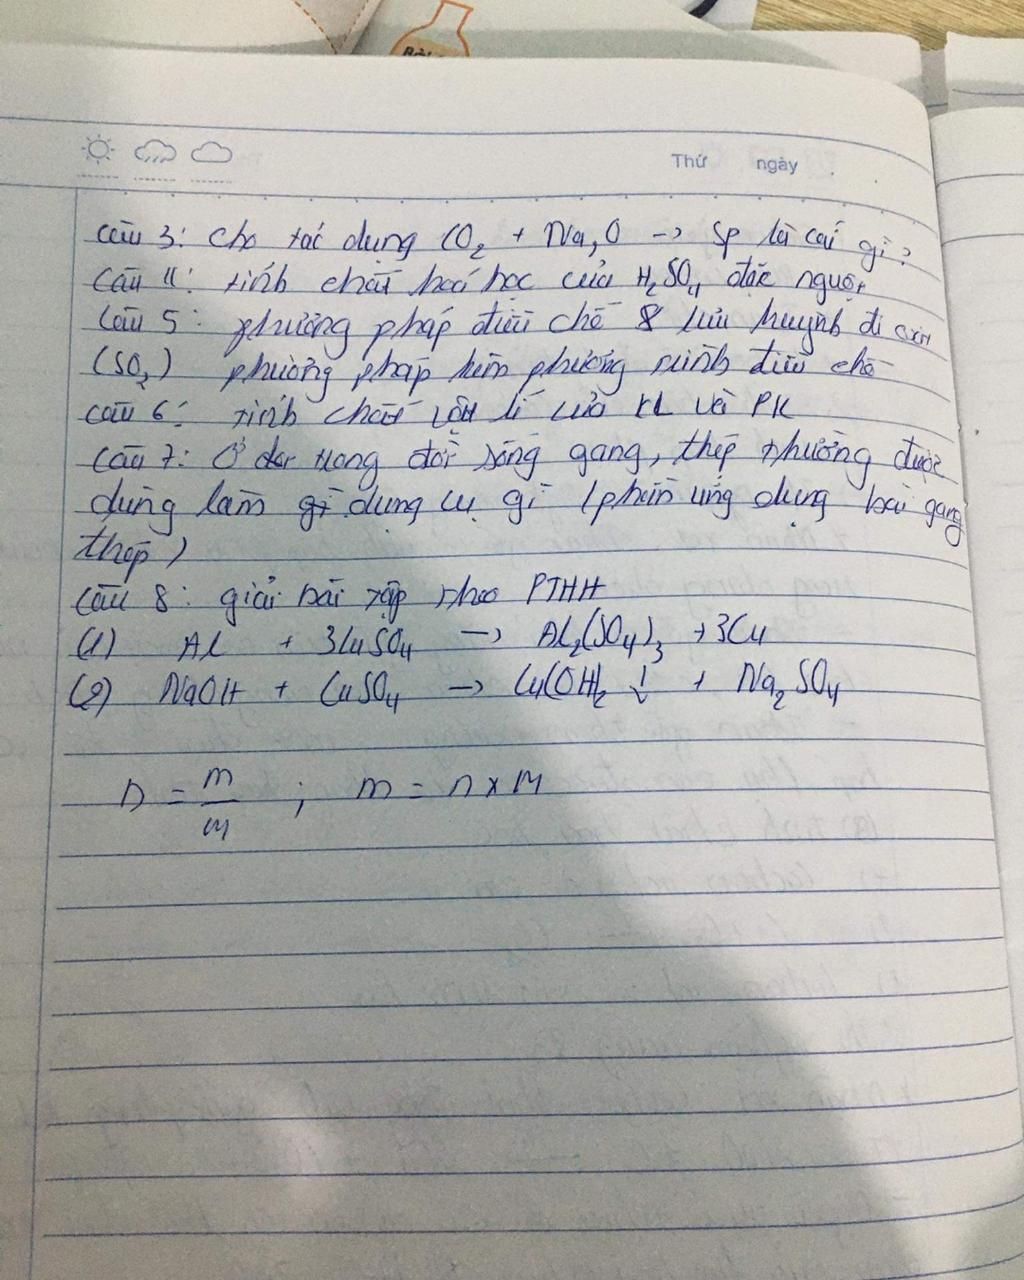 Bài
Thứ ngày
Câu 3: Cho tác dụng CO₂ + Na₂O → Sp là cái gì?
Câu 4: tính chất hoá học của H₂SO₄ đặc nguội
Câu 5: phương pháp điều chế lưu huỳnh đi oxit
(SO₂) phương pháp điều chế
Câu 6: tính chất vật lí của KL và PK
Câu 7: Ở trong đời sống gang, thép thường được
dùng làm gì dụng cụ gì (phần ứng dụng bài gang
thép)
Câu 8: giải bài tập theo PTHH
(1) Al + 3CuSO₄ → Al₂(SO₄)₃ + 3Cu
(2) NaOH + CuSO₄ → Cu(OH)₂ ↓ + Na₂SO₄
n = m/M ; m = n x M